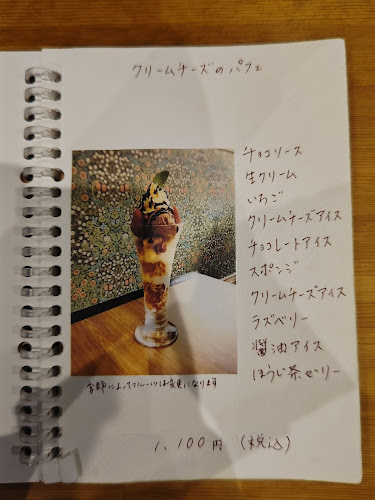 クリームチーズのパフェ
チョコソース
生クリーム
いちご
クリームチーズアイス
チョコレートアイス
スポンジ
クリームチーズアイス
ラズベリー
醤油アイス
ほうじ茶ゼリー
季節によってフルーツは変更になります
1,100円(税込)